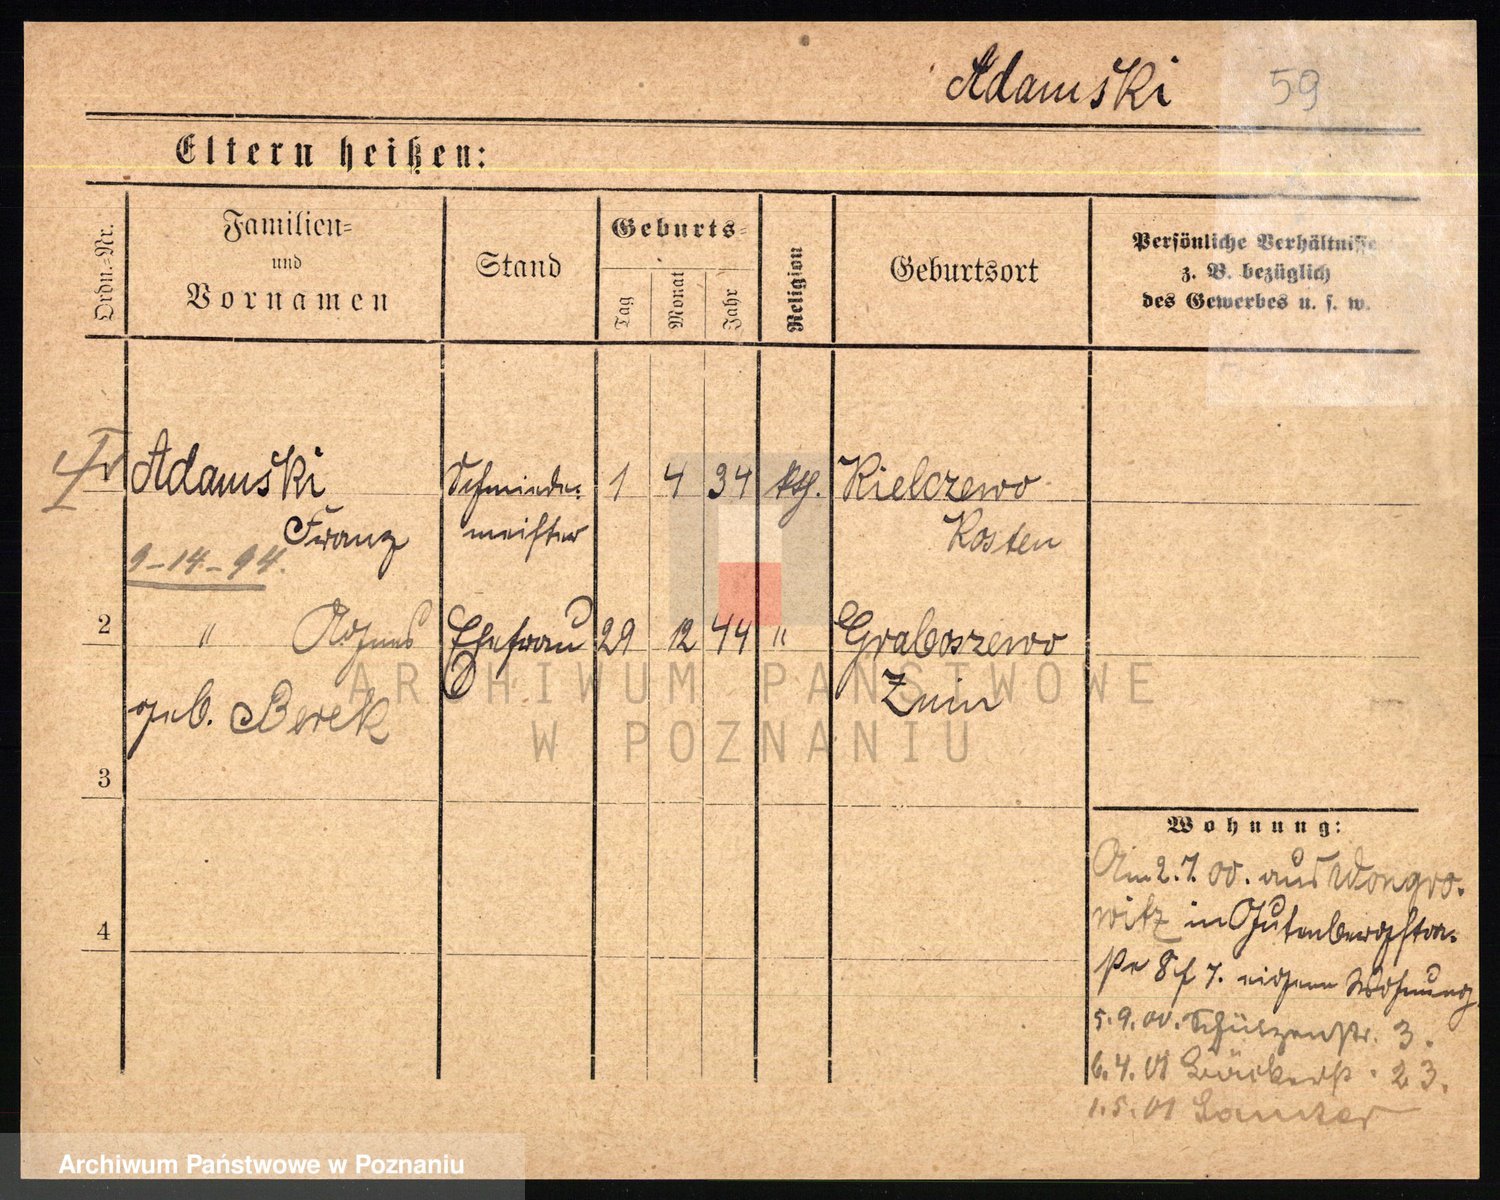 Adamski 59
Eltern heißen:
Ordn.=Nr.
Familien=
und
Vornamen
Stand
Geburts=
Tag
Monat
Jahr
Religion
Geburtsort
Persönliche Verhältnisse
z. B. bezüglich
des Gewerbes u. s. w.
Adamski Schmiede= 1 4 34 kth. Kielczewo
Franz meister Kosten
9-14-94.
2 " Agnes Ehefrau 29 12 44 " Graboszewo
geb. Berek Znin
3
4
Wohnung:
Am 2.7.00. aus Wongro-
witz in Gutenbergstra-
ße 8 f 7. eigene Wohnung
5.9.00. Schützenstr. 3.
6.4.01 Bäckerst. 23.
1.5.01 Samter
ARCHIWUM PAŃSTWOWE
W POZNANIU
Archiwum Państwowe w Poznaniu